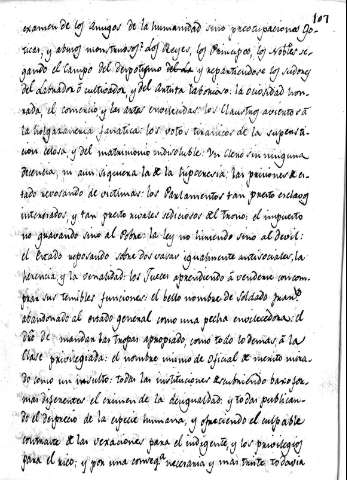 107
examen de los amigos de la humanidad sino preocupaciones Go-
ticas, y abusos monstruosos: Los Reyes, los Principes, los Nobles se-
gando el Campo del despotismo y repartiendose los sudores
del Labrador ó cultivador y del Artista laborioso: la ociosidad hon-
rada, el comercio y las artes envilecidas: los Claustros abiertos á
la holgazaneria fanatica: los votos tiranicos de la supersti-
cion celosa, y del matrimonio indisoluble: Un Clero sin ninguna
decencia, ni aun siquiera la de la hipocresia: las prisiones de es-
tado revosando de victimas: los Parlamentos tan presto esclavos
interesados, y tan presto rivales sediciosos del Trono: el impuesto
no gravando sino al Pobre: la ley no hiriendo sino al devil:
el Estado reposando sobre dos vasas igualmente antisociales, la
herencia, y la venalidad: los Jueces aprendiendo á venderse con com-
prar sus temibles funciones: el bello nombre de Soldado
abandonado al estado general como una pecha envilecedora: el
dro. de mandar las tropas apropiado, como todo lo demas, á la
Clase privilegiada: el nombre mismo de Oficial de merito mira-
do como un insulto: todas las instituciones descubriendo baxo for-
mas diferentes el crimen de la desigualdad: y todas publican-
do el desprecio de la especie humana, y ofreciendo el culpable
contraste de las vexaciones para el indigente, y los privilegios
para el rico; y por una conseqª. necesaria y mas triste todavia